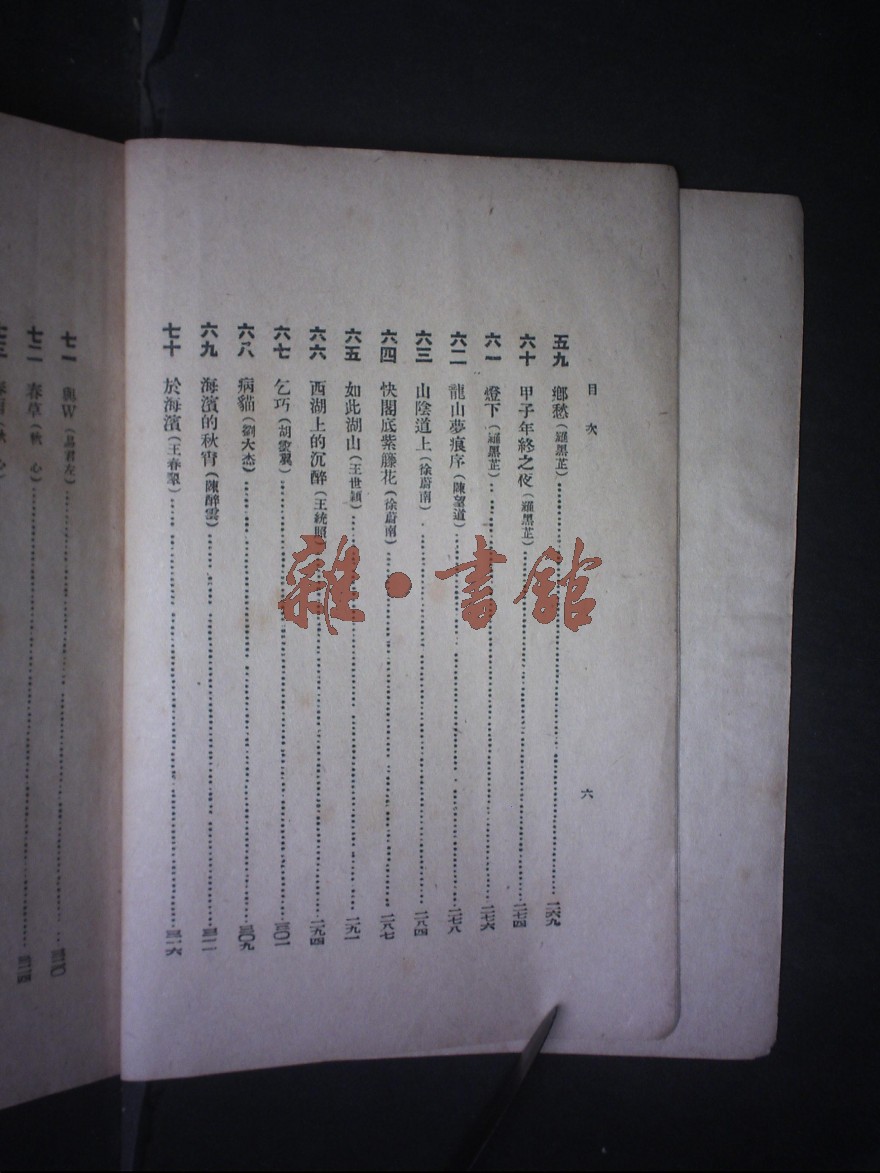 目次
六
五九 鄉愁(羅黑芷)……二六九
六十 甲子年終之夜(羅黑芷)……二七四
六一 燈下(羅黑芷)……二七六
六二 龍山夢痕序(陳望道)……二七八
六三 山陰道上(徐蔚南)……二八四
六四 快閣底紫藤花(徐蔚南)……二八七
六五 如此湖山(王世穎)……二九一
六六 西湖上的沉醉(王統照)……二九四
六七 乞巧(胡雲翼)……三〇一
六八 病貓(劉大杰)……三〇九
六九 海濱的秋宵(陳醉雲)……三一一
七十 於海濱(王春翠)……三一六
七一 與W(易君左)……三二〇
七二 春草(秋心)……三二四
七三
雜·書館